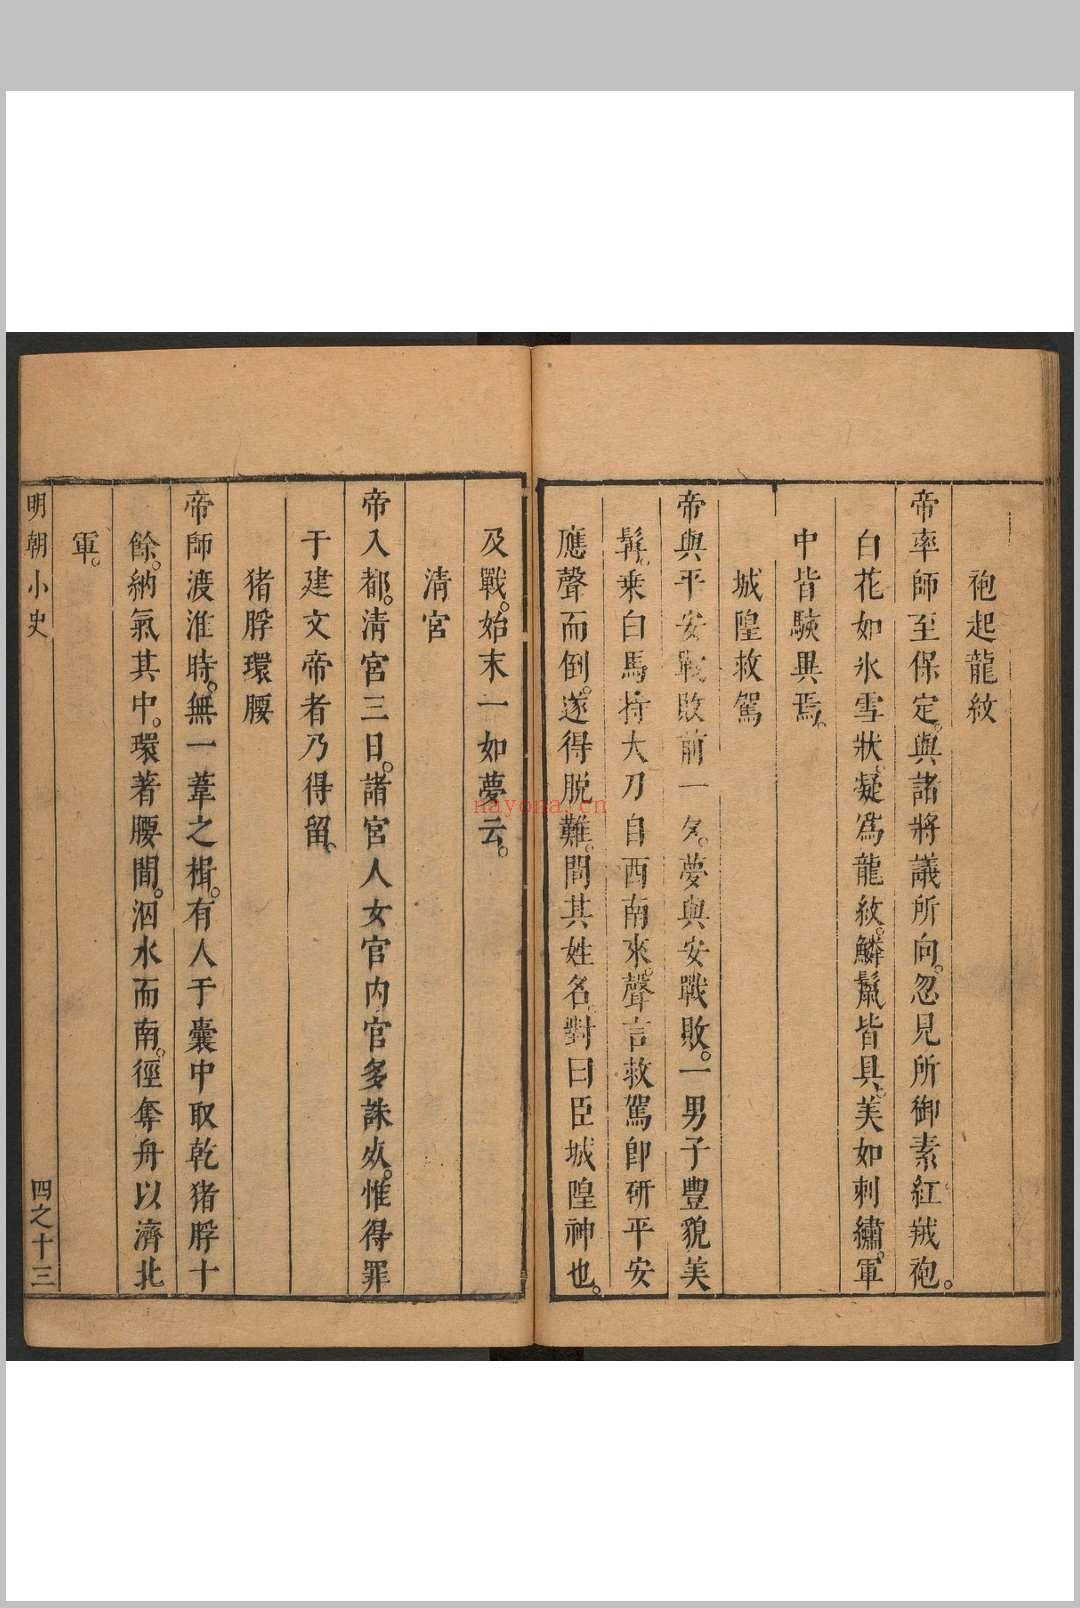 袍起龍紋
帝率師至保定。與諸將議所向。忽見所御素紅羢袍。
白花如氷雪狀。凝爲龍紋。鱗鬣皆具。美如刺繡。軍
中皆駭異焉。
城隍救駕
帝與平安戰敗前一夕。夢與安戰敗。一男子豐貌美
髯。乗白馬持大刀自西南來。聲言救駕卽斫平安
應聲而倒。遂得脱難。問其姓名。對曰臣城隍神也。
及戰。始末一如夢云。
清宮
帝入都。清宮三日。諸宮人女官内官多誅死。惟得罪
于建文帝者乃得留。
猪脬環腰
帝師渡淮時。無一葦之楫。有人于囊中取乾猪脬十
餘。納氣其中。環著腰間。泅水而南。徑奪舟以濟北
軍。
明朝小史
四之十三
nayona.cn